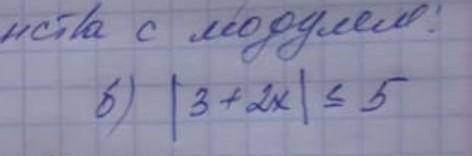 нства с модулем:
б) |3+2x| ≤ 5